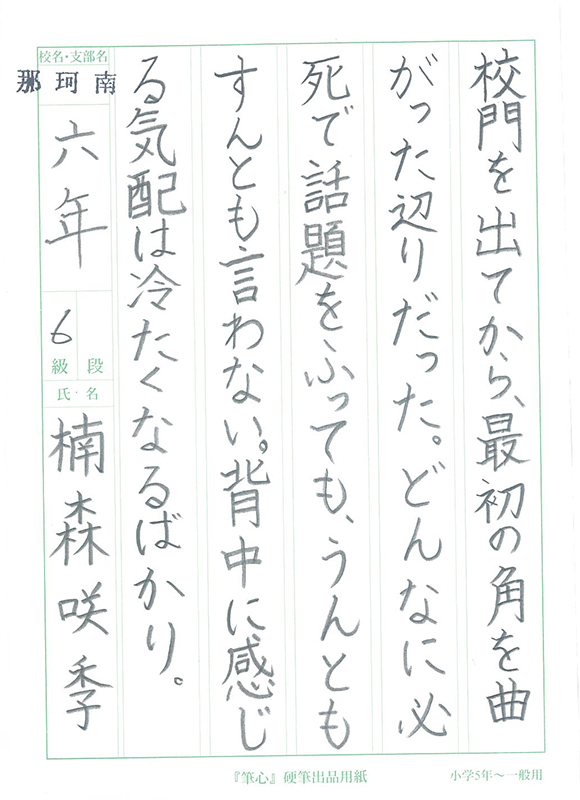 校門を出てから、最初の角を曲
がった辺りだった。どんなに必
死で話題をふっても、うんとも
すんとも言わない。背中に感じ
る気配は冷たくなるばかり。
校名・支部名
那珂南
六年
6
級 段
氏・名
楠森咲季
『筆心』硬筆出品用紙
小学5年～一般用